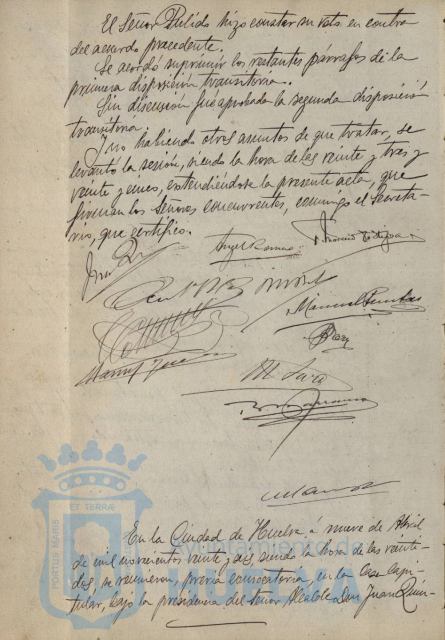 El Señor Pulido hizo constar su voto en contra
del acuerdo precedente.
Se acordó suprimir los restantes párrafos de la
primera disposición transitoria.
Sin discusión fue aprobada la segunda disposición
transitoria;
Y no habiendo otros asuntos de que tratar, se
levantó la sesión, siendo la hora de las veinte y tres y
veinte y cinco, extendiéndose la presente acta, que
firman los Señores concurrentes, conmigo el Secreta-
rio, que certifico.
Manuel
ET TERRÆ
PORTUS MARIS
Ayuntamiento de
HUELVA
En la Ciudad de Huelva á nueve de Abril
de mil novecientos veinte y dos, siendo la hora de las veinti-
dos, se reunieron, previa convocatoria, en la Casa Capi-
tular, bajo la presidencia del Señor Alcalde Don Juan